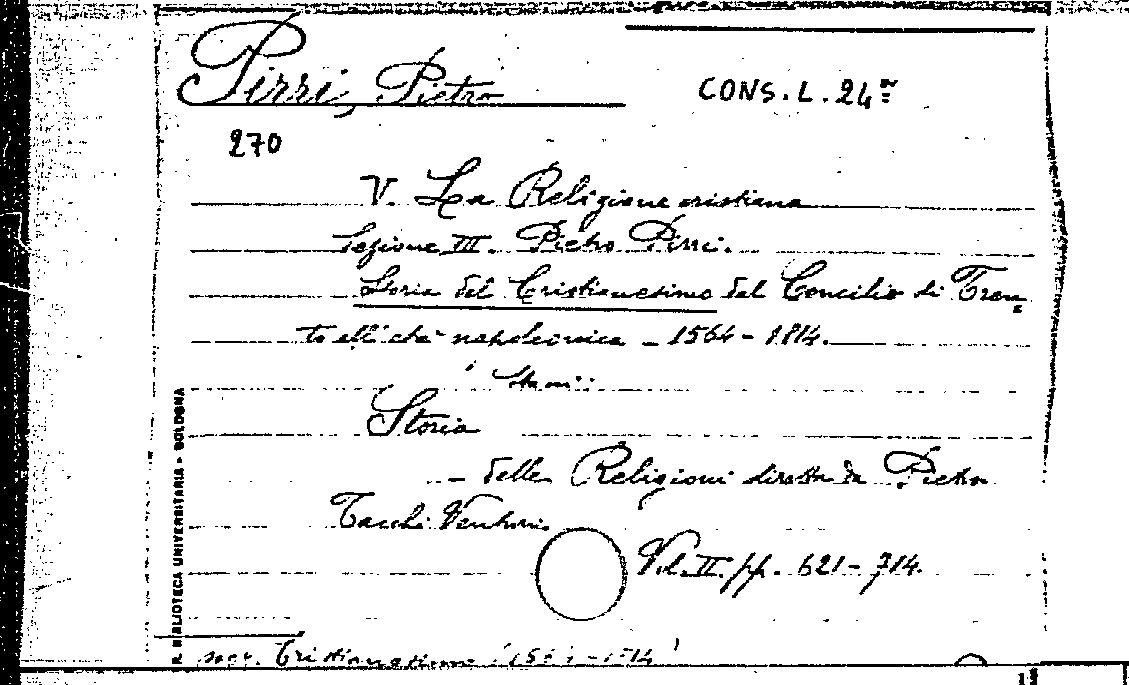 Pirri, Pietro
CONS. L. 24
270
V. La Religione cristiana
Sezione III. Pietro Pirri.
Storia del Cristianesimo dal Concilio di Tren=
to all'età napoleonica - 1564 - 1814.
Storia
- delle Religioni diretta da Pietro
Tacchi Venturi
Vol. II. pp. 621 - 714.
Cristianesimo (1564 - 1814)
R. BIBLIOTECA UNIVERSITARIA - BOLOGNA